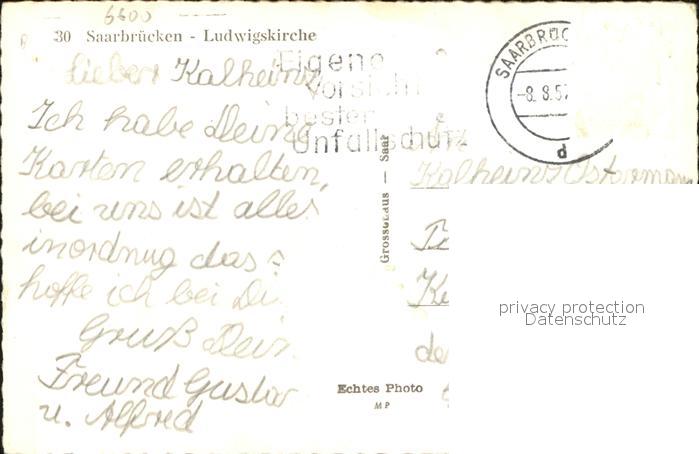 6600
30 Saarbrücken - Ludwigskirche
Lieber Kalheinz
Ich habe Deine
Karten erhalten,
bei uns ist alles
inordnug das
hoffe ich bei Di
Gruß Dein
Freund Gustav
u. Alfred
Eigene
Vorsicht
bester
Unfallschutz
SAARBRÜC
-8. 8.57
d
Grossohaus — Saar
Kalheinz Ostermann
Echtes Photo
MP
privacy protection
Datenschutz